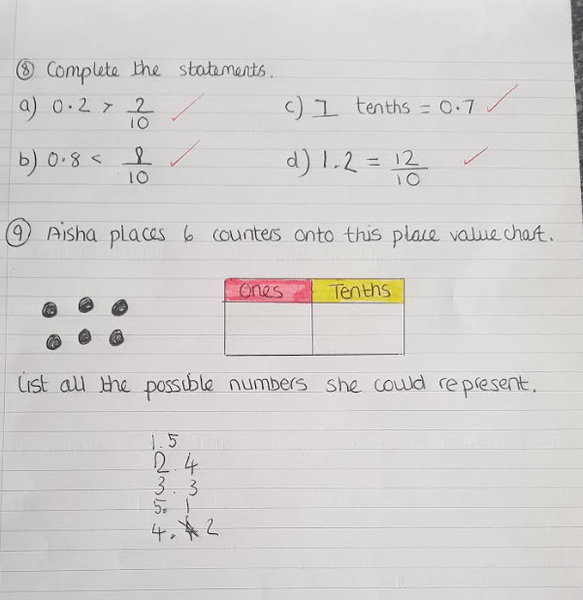 ⑧ Complete the statements.
a) 0.2 > 2/10
c) tenths = 0.7
b) 0.8 < /10
d) 1.2 = 12/10
⑨ Aisha places 6 counters onto this place value chart.
Ones Tenths
List all the possible numbers she could represent.
1.5
2.4
3.3
5.1
4.2